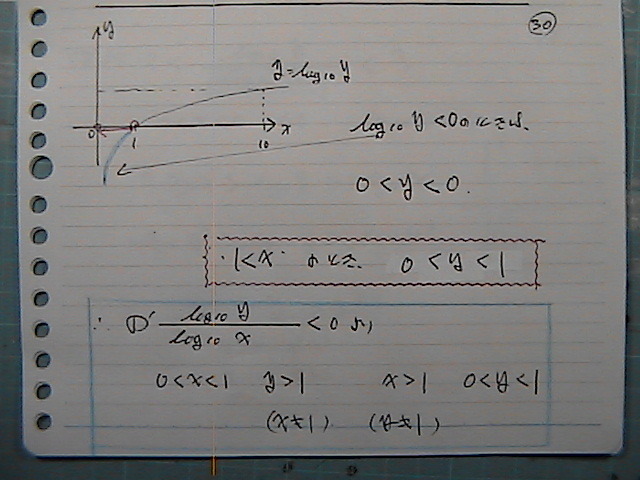 30
y
y=log10 y
0 1 10 x
log10 y <0のときは.
0<y<0.
・1<x のとき. 0<y<1
∴ ①' log10 y / log10 x <0より
0<x<1 y>1 x>1 0<y<1
(x≠1) (y≠1)